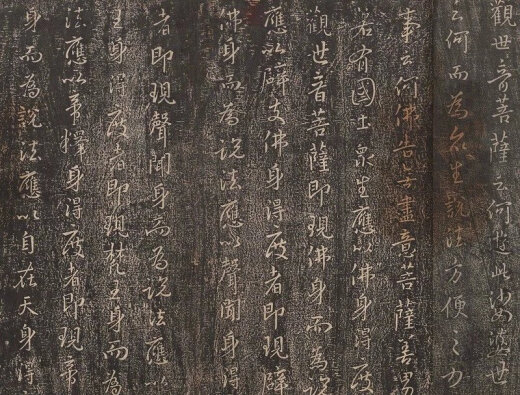 觀世音菩薩云何遊此娑婆世
云何而為衆生說法方便之力
事云何佛告无盡意菩薩善男
若有國土衆生應以佛身得度
觀世音菩薩即現佛身而為說
應以辟支佛身得度者即現辟
佛身而為說法應以聲聞身得
者即現聲聞身而為說法應以
王身得度者即現梵王身而為
法應以帝釋身得度者即現帝
身而為說法應以自在天身得